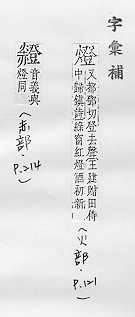 字彙補
燈
又都鄧切登去聲王建贈田侍
中歸鎮詩綠窗紅燈酒初新
(火部·P.121
音義與
燈同
(赤部·P.214